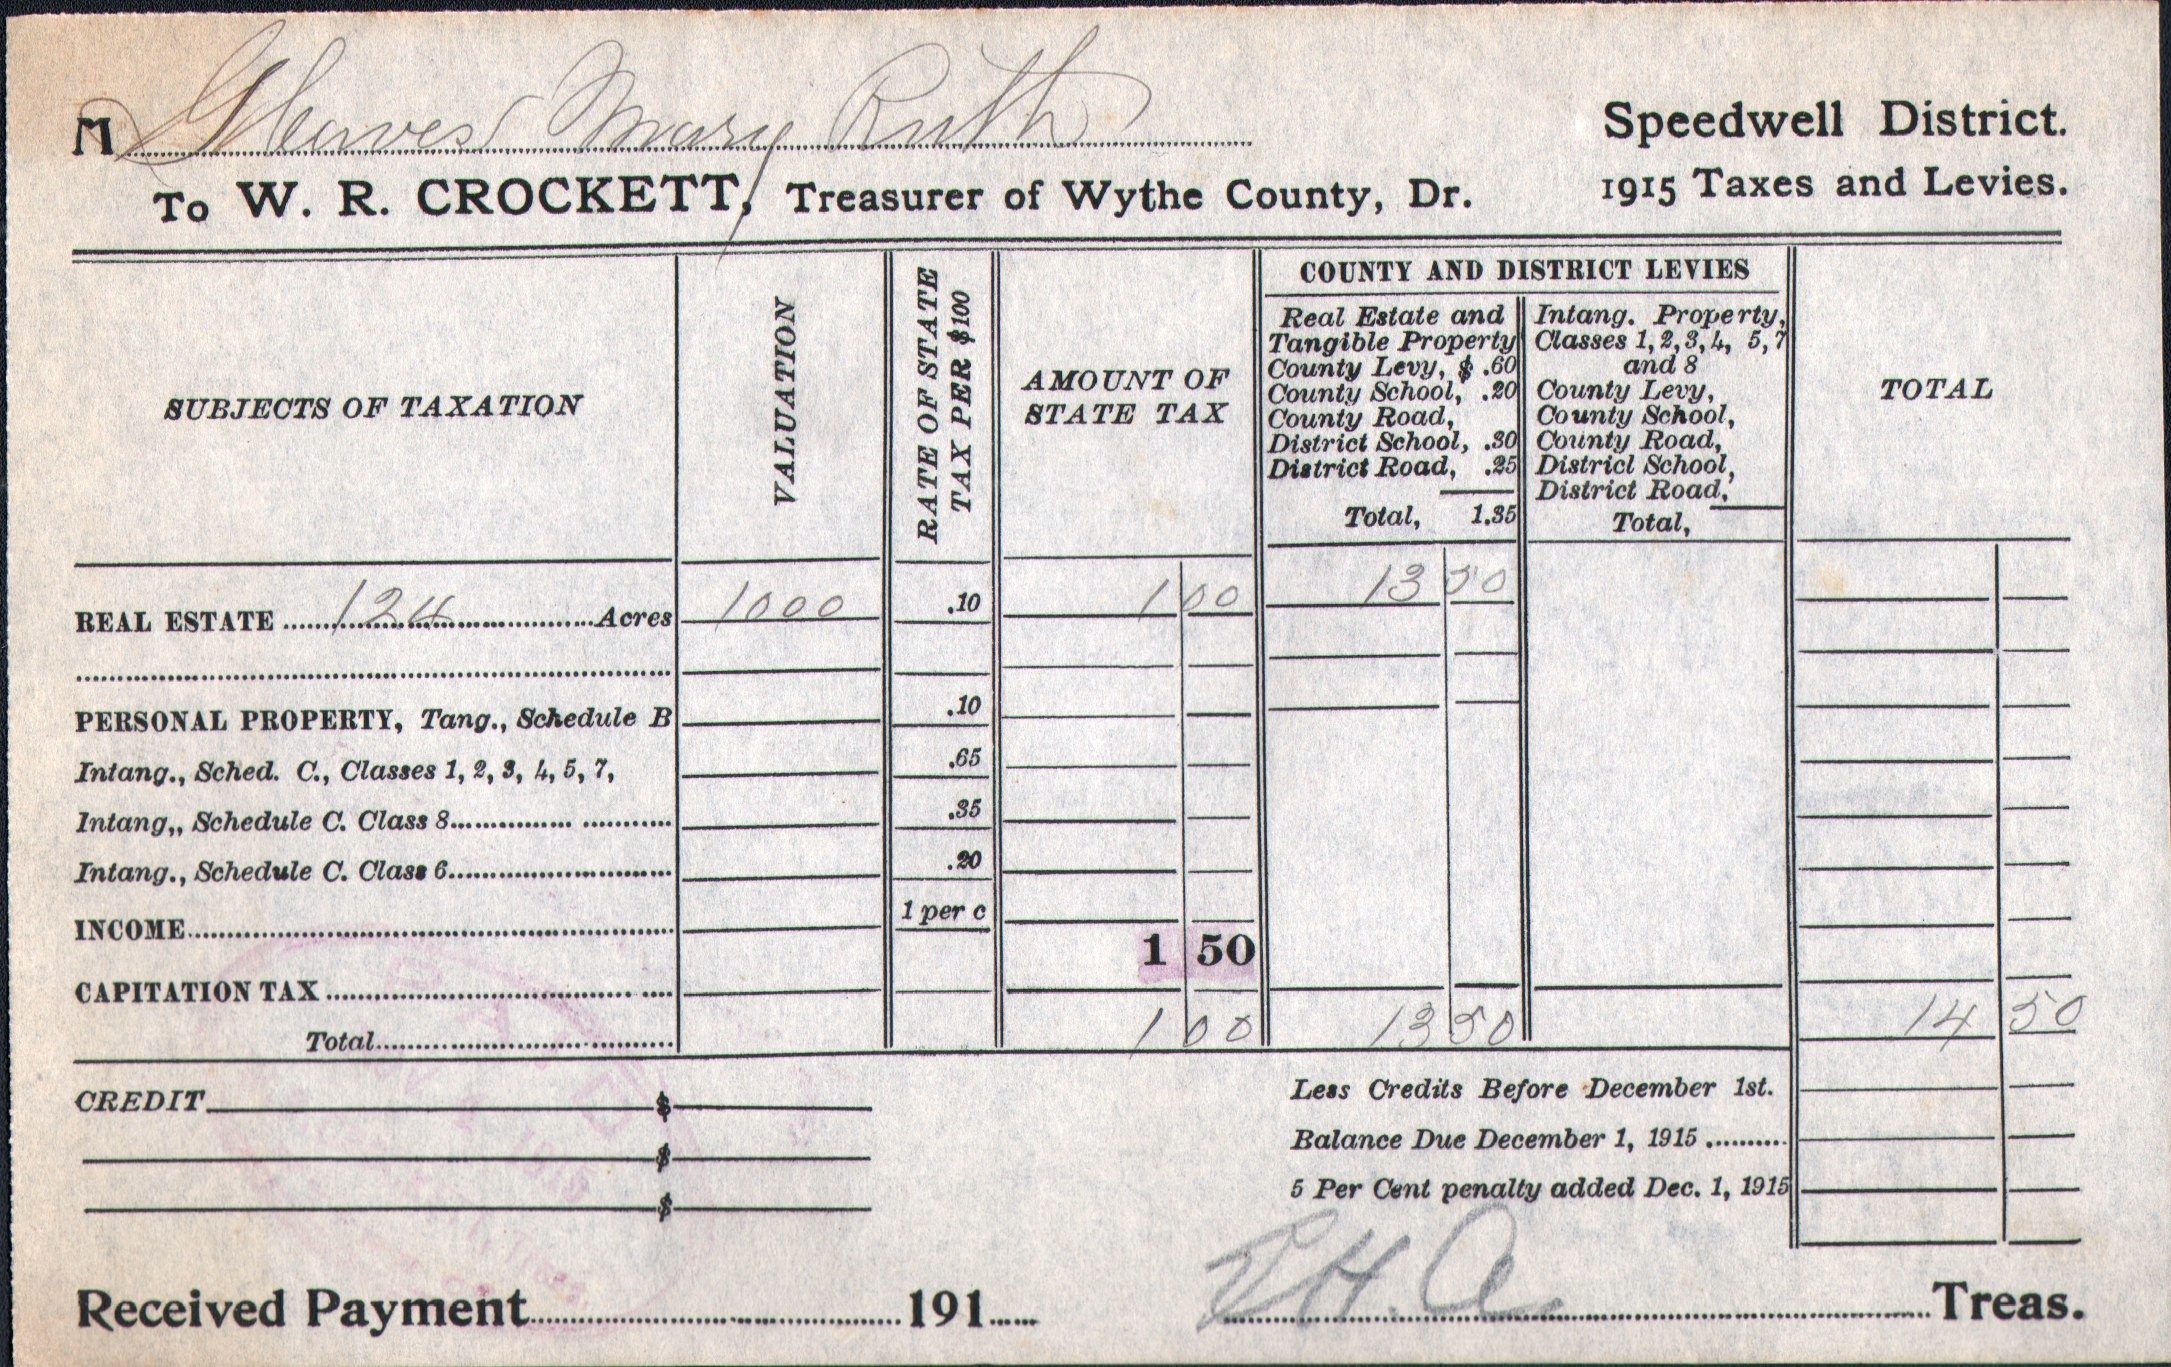 M Gleaves Mary Ruth
Speedwell District.
To W. R. CROCKETT, Treasurer of Wythe County, Dr.
1915 Taxes and Levies.
SUBJECTS OF TAXATION
VALUATION
RATE OF STATE
TAX PER $100
AMOUNT OF
STATE TAX
COUNTY AND DISTRICT LEVIES
Real Estate and
Tangible Property
County Levy, $ .60
County School, .20
County Road,
District School, .30
District Road, .25
Total, 1.35
Intang. Property,
Classes 1, 2, 3, 4, 5, 7
and 8
County Levy,
County School,
County Road,
District School,
District Road,
Total,
TOTAL
REAL ESTATE 124 Acres 1000 .10 1 00 13 50
PERSONAL PROPERTY, Tang., Schedule B .10
Intang., Sched. C., Classes 1, 2, 3, 4, 5, 7, .65
Intang,, Schedule C. Class 8 .35
Intang., Schedule C. Class 6 .20
INCOME 1 per c
CAPITATION TAX 1 50
Total 1 00 13 50 14 50
CREDIT $
$
$
Less Credits Before December 1st.
Balance Due December 1, 1915
5 Per Cent penalty added Dec. 1, 1915
Received Payment 191 Treas.